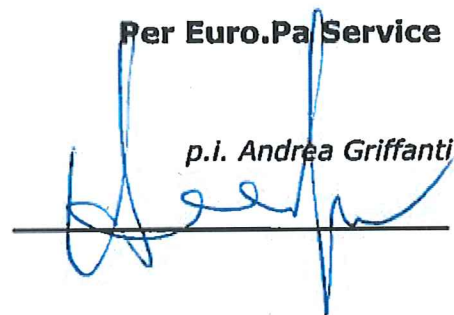 Per Euro.Pa Service
p.i. Andrea Griffanti